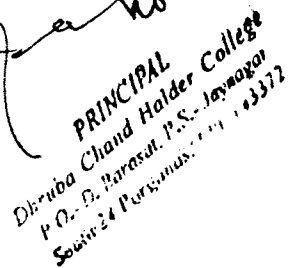 PRINCIPAL
Dhruba Chand Halder College
P.O.-D. Barasat, P.S.-Jaynagar
South 24 Parganas,